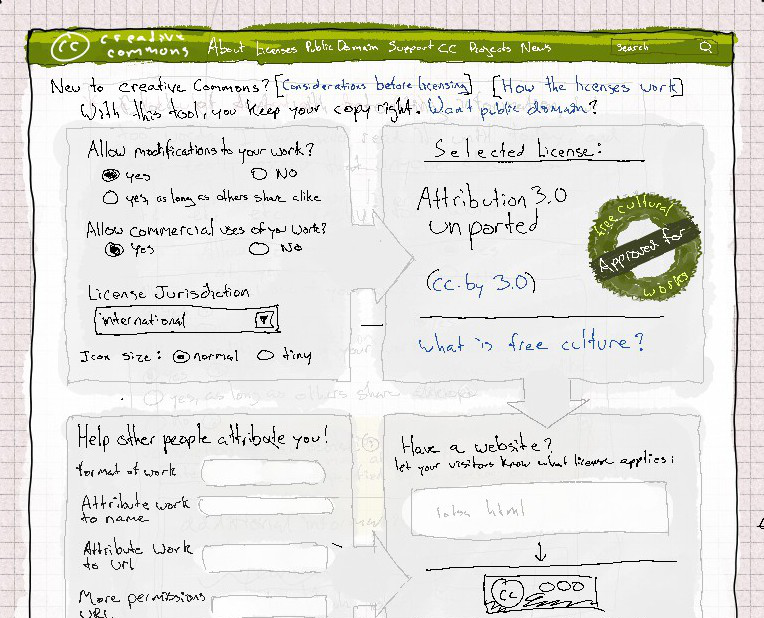 cc creative commons
About Licenses Public Domain Support CC Projects News
Search
New to creative Commons? [Considerations before licensing] [How the licenses work]
With this tool, you keep your copy right. Want public domain?
Allow modifications to your work?
yes NO
yes, as long as others share alike
Allow commercial uses of you work?
Yes No
License Jurisdiction
international
Icon size: normal tiny
Selected License:
Attribution 3.0
unported
(cc-by 3.0)
free cultural
Approved for
works
What is free culture?
Help other people attribute you!
format of work
Attribute work
to name
Attribute Work
to url
More permissions
URL
Have a website?
let your visitors know what license applies:
html
cc